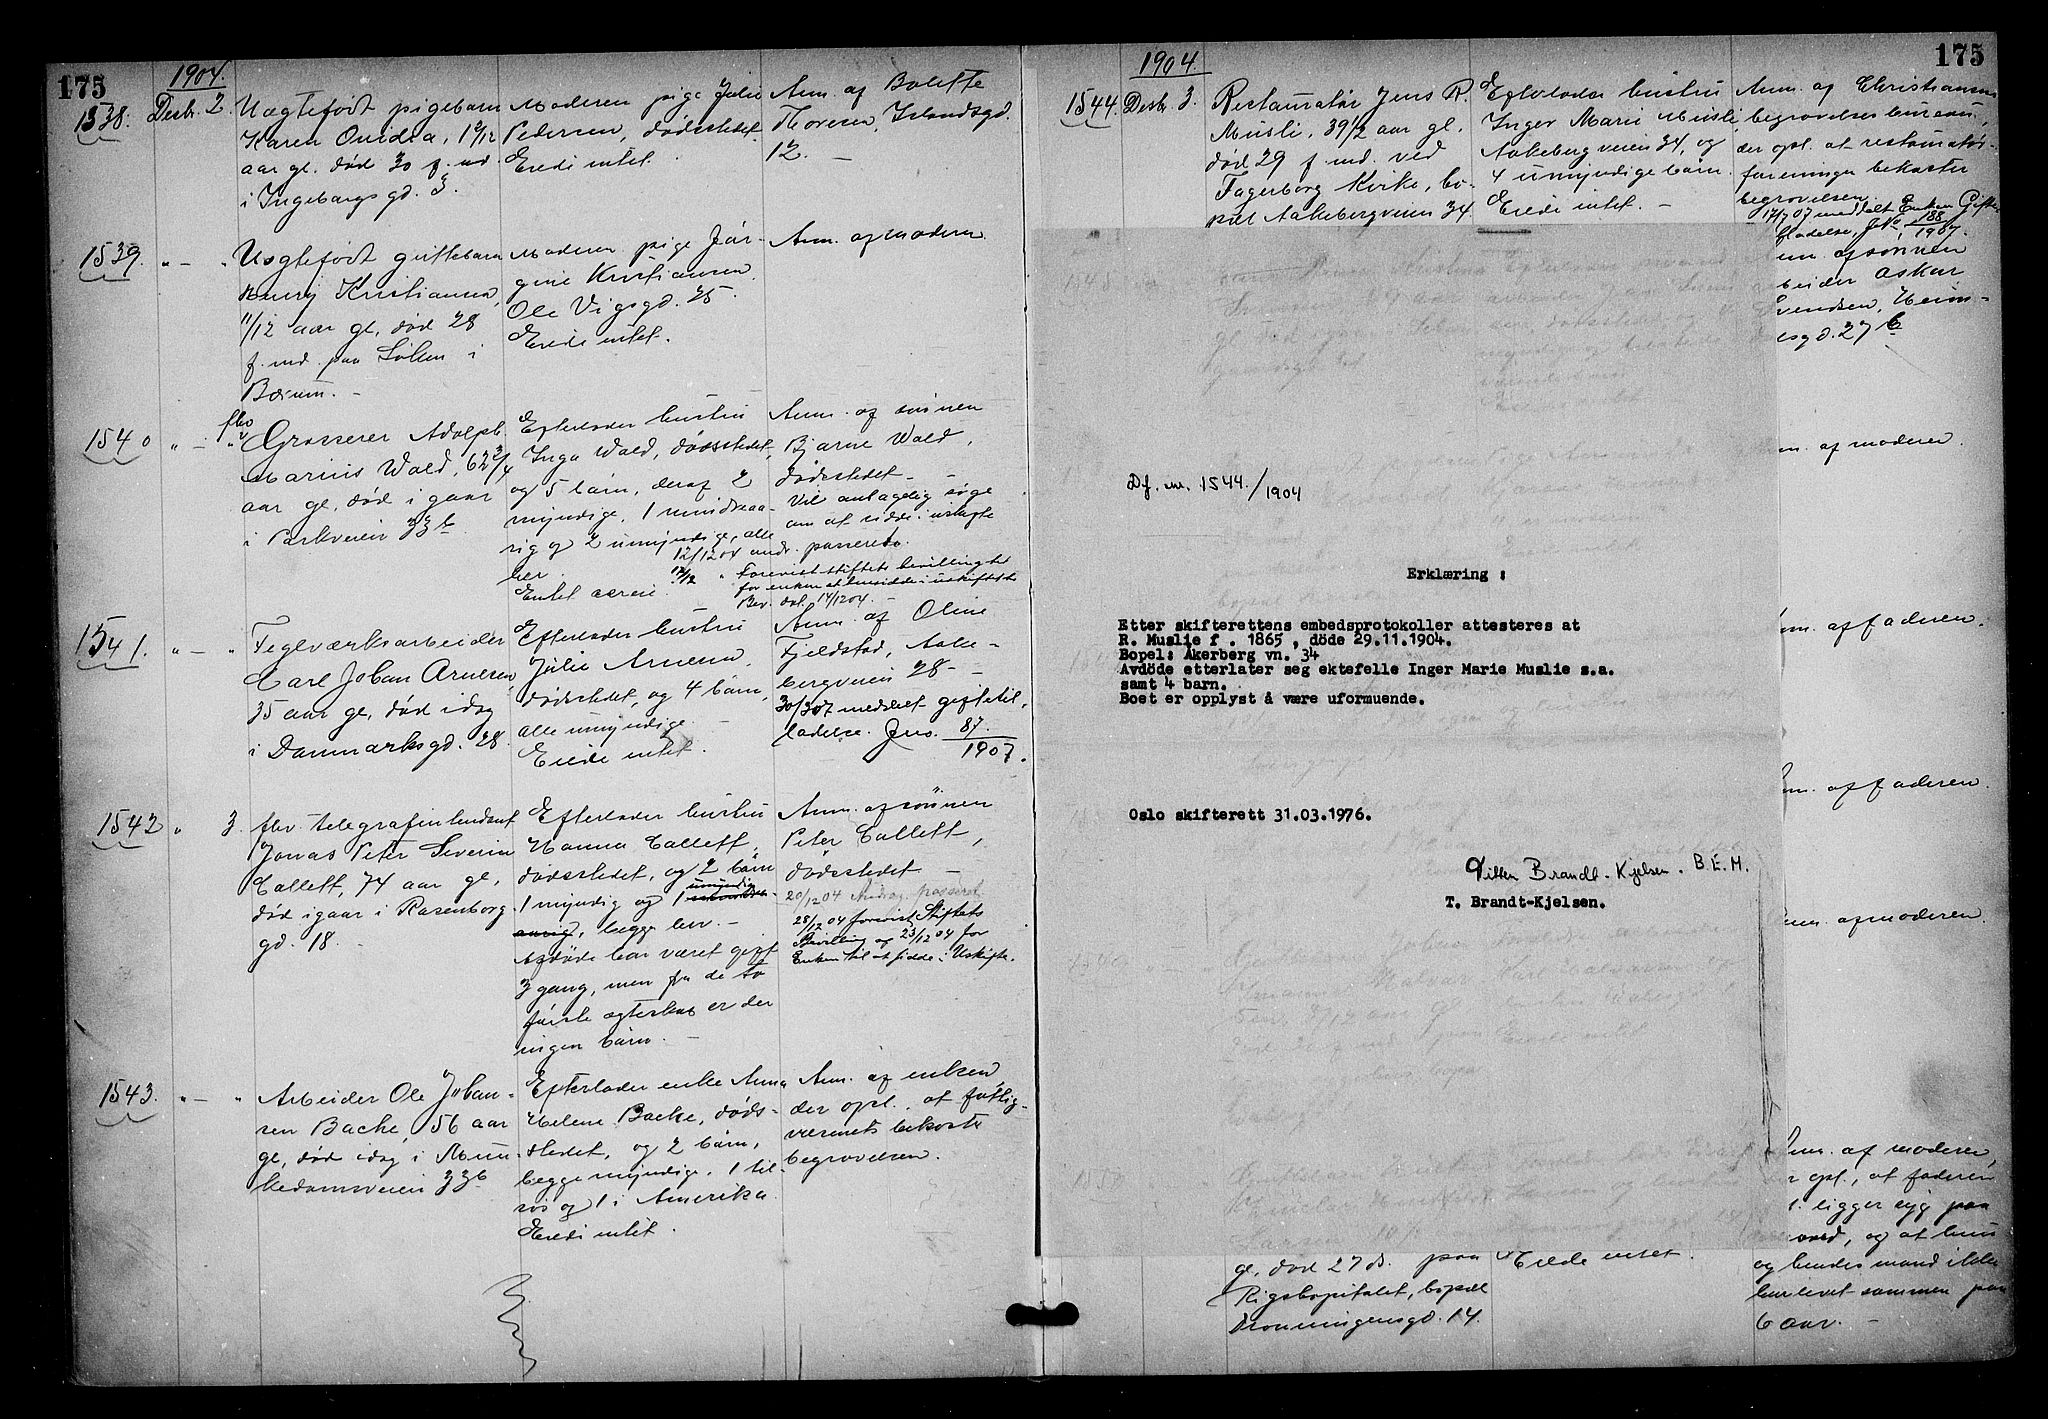 175
1904.
1538. Desbr. 2.
Uægtefødt pigebarn
Karen Ovidia, 1 9/12
aar gl. død 30 f. md.
i Ingeborgsgd. 3.
Moderen pige Julie
Pedersen, dødsstedet.
Eiede intet.
Anm. af Bolette
Thoresen, Islandsgd.
12. —
1539. " — "
Uægtefødt guttebarn
Kristiansen,
11/12 aar gl., død 28
f. md. paa
i
Bærum. —
Moderen pige Jør-
gine Kristiansen
Ole Vigsgd. 25.
Eiede intet.
Anm. af moderen.
1540 " — "
fhv.
Grosserer Adolph
Marius Wald, 62 3/4
aar gl., død igaar
i Parkveien 33b.
Efterlader hustru
Inga Wald, dødsstedet,
og 5 børn, deraf 2
myndige, 1 mindreaa-
rig og 2 umyndige, alle
her.
Enket
Anm. af sønnen
Bjarne Wald,
dødsstedet —
Vil antagelig søge
om at sidde i uskifte
12/12 04 andr. passeret.
17/12 " Forevist stiftets bevilling
for enken at hensidde i uskiftet
Bev. dat. 14/12 04. —
1541. " — "
Teglværksarbeider
Carl Johan Arnesen
35 aar gl., død idag
i Danmarksgd. 28.
Efterlader hustru
Julie Arnesen,
dødsstedet, og 4 børn,
alle umyndige.
Eiede intet.
Anm. af Oline
Fjeldstad, Aake-
bergveien 28 —
30/3 07 meddelt giftetil-
ladelse. Jno. 87/1907.
1542 " 3.
fhv. telegrafintendant
Jonas Peter Severin
Collett, 74 aar gl.,
død igaar i Rosenborg-
gd. 18. —
Efterlader hustru
Hanna Collett,
dødsstedet, og 2 børn
1 myndig og 1 umyndig
begge her. —
Afdøde har været gift
3 gang, men fra de to
første ægteskab er der
ingen børn. —
Anm. af sønnen
Peter Collett,
dødsstedet —
20/12 04 Andrag. passeret
28/12 04 forevist Stiftets
Bevilling af 23/12 04 for
Enken til at sidde i Uskifte.
1543. " — "
Arbeider Ole Johan-
sen Bache, 56 aar
gl., død idag i Mun-
kedamsveien 33b
Efterlader enke Anna
Helene Bache, døds-
stedet, og 2 børn,
begge myndige, 1 til-
sjøs og 1 i Amerika.
Eiede intet.
Anm. af enken
der opl., at fattig-
væsenet bekoster
begravelsen.
1904.
175
1544. Desbr. 3.
Restauratør Jens R.
Musli, 39 1/2 aar gl.,
død 29 f. md. ved
Fagerborg Kirke, bo-
pæl Aakebergveien 34.
Efterlader hustru
Inger Marie Musli,
Aakebergveien 34, og
4 umyndige børn.
Eiede intet. —
Anm. af Christiania
begravelsesbureau,
der opl. at restauratør-
foreningen bekoster
begravelsen.
17/7 07 meddelt Enken Gifte-
tilladelse, J No 188/1907.
af sønnen
Oskar
27 b
af moderen.
af faderen.
af faderen
af moderen
Df. nr. 1544./1904
Erklæring :
Etter skifterettens embedsprotokoller attesteres at
R. Muslie f . 1865 , döde 29.11.1904.
Bopel: Åkerberg vn. 34
Avdöde etterlater seg ektefelle Inger Marie Muslie s.a.
samt 4 barn.
Boet er opplyst å være uformuende.
Oslo skifterett 31.03.1976.
Ditten Brandt-Kjelsen. B.E.M.
T. Brandt-Kjelsen.
af moderen,
opl., at faderen
ligger syg paa
og at hun
og hendes mand ikke
har levet sammen paa
6 aar. —
gl., død 27 ds. paa
Rigshospitalet, bopæl
Dronningensgd. 14.
Eiede intet.